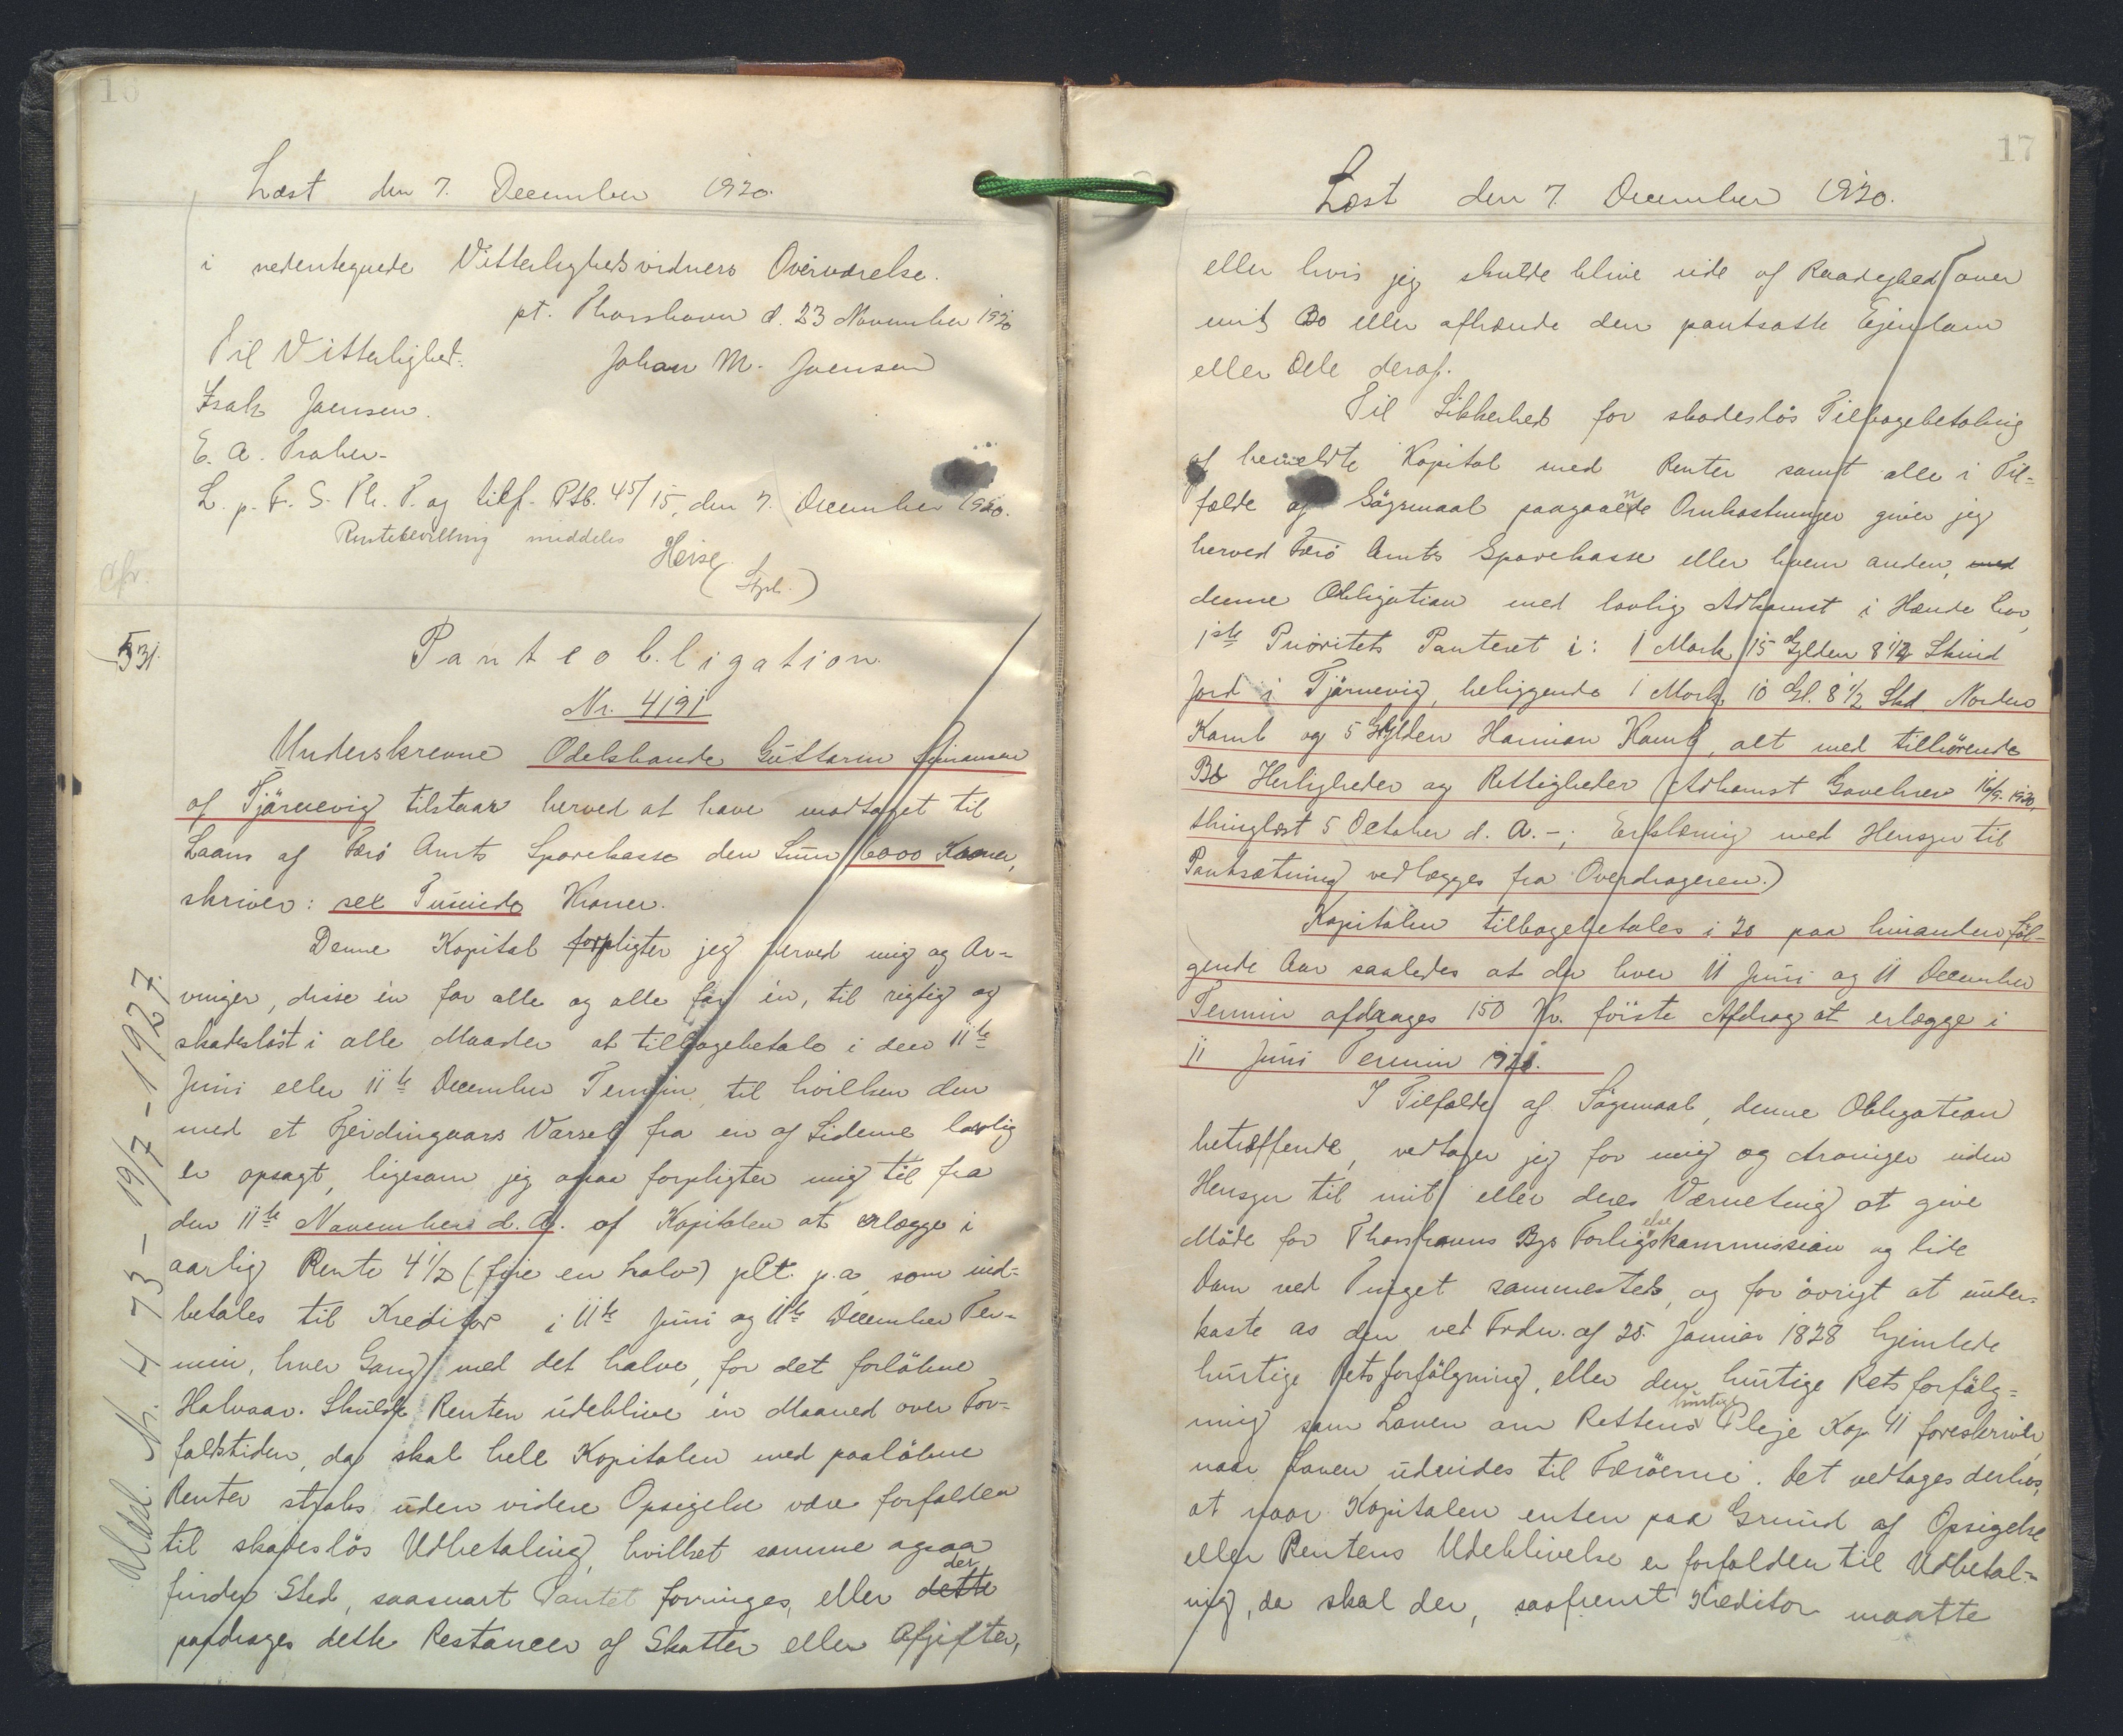 16
Læst den 7. December 1920.
i nedentegnede Vitterlighedsvidners Overværelse.
pt. Thorshavn d. 23 November 1920
Til Vitterlighed. Johan M. Joensen
Isak Joensen.
E. A.
L. p. F. S. Th. P. og tilf. Ptb. 45/15, den 7. December 1920.
Rentebevilling meddeles
Heise
531.
Panteobligation.
Nr. 4191
Underskrevne Odelsbonde Guttorm Simonsen
af Tjörnevig tilstaar herved at have modtaget til
Laans af Færö Amts Sparekasse den Sum 6000 Kroner,
skriver: sex Tusinde Kroner.
Denne Kapital forpligter jeg herved mig og Ar-
vinger, disse én for alle og alle for én, til rigtig og
skadesløst i alle Maader at tilbagebetale i den 11te
Juni eller 11te December Termin, til hvilken den
med et Fjerdingaars Varsel fra en af Siderne lovlig
er opsagt, ligesom jeg ogsaa forpligter mig til fra
den 11te November d. A. af Kapitalen at erlægge i
aarlig Rente 4 1/2 (fire en halv) pCt. p.a. som ind-
betales til Kreditor i 11te Juni og 11te December Ter-
min, hver Gang med det halve, for det forløbne
Halvaar. Skulde Renten udeblive én Maaned over For-
faldstiden, da skal hele Kapitalen med paaløbne
Renter straks uden videre Opsigelse være forfalden
til skadesløs Udbetaling, hvilket samme ogsaa
finder Sted, saasnart Pantet forringes, eller dette der
paadrages dette Restancer af Skatter eller Afgifter,
Nr. 473 - 19/7 - 1927.
17
Læst den 7. December 1920.
eller hvis jeg skulde blive ude af Raadighed over
mit Bo eller afhænde den pantsatte Ejendom
eller Dele deraf.
Til Sikkerhed for skadeslös Tilbagebetaling
af bemeldte Kapital med Renter samt alle i Til-
fælde af Sögsmaal paagaaende Omkostninger giver jeg
herved Færö Amts Sparekasse eller hvem anden, med
denne Obligation med lovlig Adkomst i Hænde har,
1ste Prioritets Panteret i: 1 Mark 15 Gylden 8 1/2 Skind
Jord i Tjörnevig, beliggende 1 Mark 10 Gl. 8 1/2 Skd. Norden
Kamb og 5 Gylden Hannan Kamb, alt med tilhörende
Bø Herligheder og Rettigheder (Adkomst Gavebrev 16/9. 1920,
thinglæst 5 October d. A. -; Erklæring med Hensyn til
Pantsætning vedlægges fra Overdrageren.)
Kapitalen tilbagebetales i 20 paa hinanden föl-
gende Aar saaledes at der hver 11 Juni og 11 December
Termin afdrages 150 Kr. förste Afdrag at erlægge i
11 Juni Termin 1921.
I Tilfælde af Sögsmaal, denne Obligation
betræffende, vedtager jeg for mig og Arvinger uden
Hensyn til mit eller deres Værneting at give
Möde for Thorshavns Byes Forligelseskommission og lide
Dom ved Tinget sammesteds, og for övrigt at under-
kaste os den ved Frdn. af 25. Januar 1828 hjemlede
hurtige Retsforfölgning, eller den hurtige Rets forfölg-
ning som Loven om Rettens hurtige Pleje Kap 41 foreskriver,
naar Loven udvides til Færöerne. Det vedtages derhos,
at naar Kapitalen enten paa Grund af Opsigelse
eller Rentens Udeblivelse er forfalden til Udbetal-
ning, da skal der, saafremt Kreditor maatte